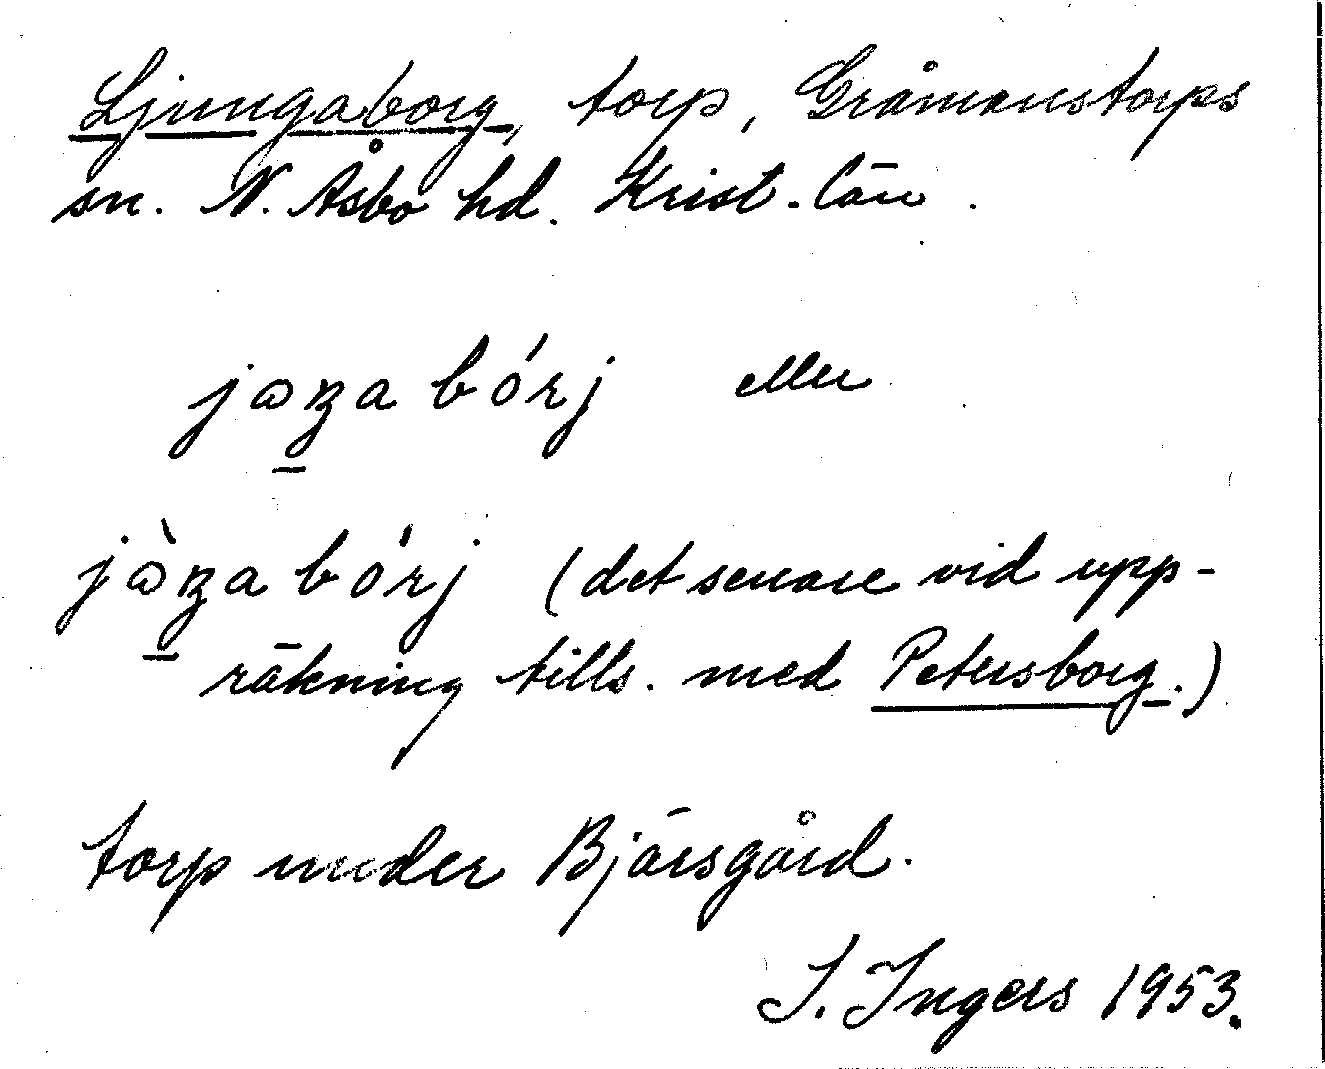 Ljungaborg, torp, Gråmanstorps
sn. N. Åsbo hd. Krist. län.
jɷŋ̱a bórj eller
jɷ̀ŋ̱a bórj (det senare vid upp-
räkning tills. med Petersborg.)
torp under Bjärsgård.
I. Ingers 1953.